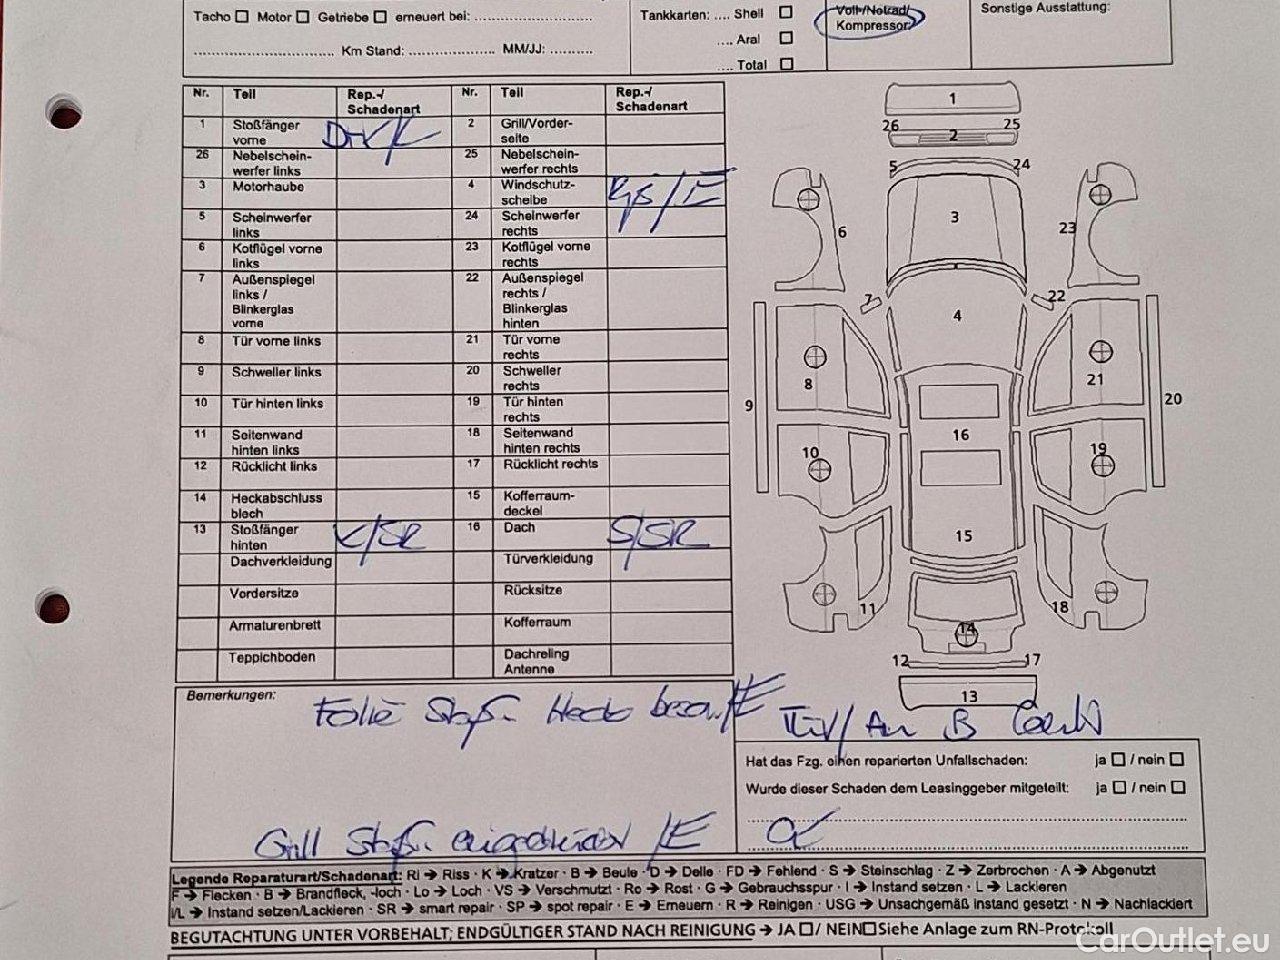 Tacho ☐ Motor ☐ Getriebe ☐ erneuert bei: ............................
.................................. Km Stand: ..................... MM/JJ: ..........
Tankkarten: .... Shell ☐
.... Aral ☐
.... Total ☐
Voll-/Notrad/
Kompressor
Sonstige Ausstattung:
Nr. Teil Rep.-/ Schadenart Nr. Teil Rep.-/ Schadenart
1 Stoßfänger vorne 2 Grill/Vorder-seite
26 Nebelschein-werfer links 25 Nebelschein-werfer rechts
3 Motorhaube 4 Windschutz-scheibe
5 Scheinwerfer links 24 Scheinwerfer rechts
6 Kotflügel vorne links 23 Kotflügel vorne rechts
7 Außenspiegel links / Blinkerglas vorne 22 Außenspiegel rechts / Blinkerglas hinten
8 Tür vorne links 21 Tür vorne rechts
9 Schweller links 20 Schweller rechts
10 Tür hinten links 19 Tür hinten rechts
11 Seitenwand hinten links 18 Seitenwand hinten rechts
12 Rücklicht links 17 Rücklicht rechts
14 Heckabschluss blech 15 Kofferraum-deckel
13 Stoßfänger hinten K/SR 16 Dach S/SR
Dachverkleidung Türverkleidung
Vordersitze Rücksitze
Armaturenbrett Kofferraum
Teppichboden Dachreling Antenne
1
26 2 25
5 24
3
6 23
7 22
4
8 21
9 20
16
10 19
15
11 18
14
12 17
13
Bemerkungen:
Folie Stoßf. Heck /E
Grill Stoßf. /E
Hat das Fzg. einen reparierten Unfallschaden: ja ☐ / nein ☐
Wurde dieser Schaden dem Leasinggeber mitgeteilt: ja ☐ / nein ☐
Legende Reparaturart/Schadenart: Ri → Riss · K → Kratzer · B → Beule · D → Delle · FD → Fehlend · S → Steinschlag · Z → Zerbrochen · A → Abgenutzt
F → Flecken · B → Brandfleck, -loch · Lo → Loch · VS → Verschmutzt · Ro → Rost · G → Gebrauchsspur · I → Instand setzen · L → Lackieren
I/L → Instand setzen/Lackieren · SR → smart repair · SP → spot repair · E → Erneuern · R → Reinigen · USG → Unsachgemäß instand gesetzt · N → Nachlackiert
BEGUTACHTUNG UNTER VORBEHALT; ENDGÜLTIGER STAND NACH REINIGUNG → JA ☐/ NEIN☐ Siehe Anlage zum RN-Protokoll
CarOutlet.eu